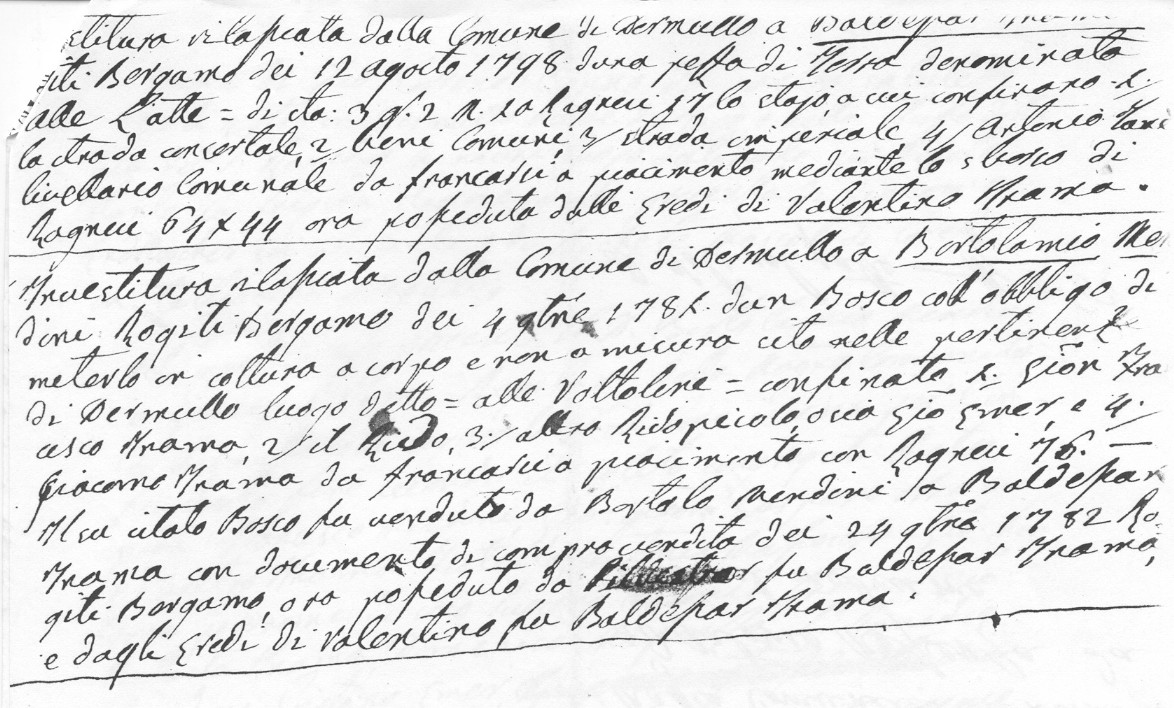 stitura rilasciata dalla Comune di Dermullo a Baldessar Inama
giti Bergamo dei 12 agosto 1798. duna pessa di Terra denominata
alle Latte = di sta: 3 q. 2 Ragnesi 17 lo stajo a cui confinano 1/
la strada consortale, 2/ beni Comuni 3/ strada imperiale, 4/ Antonio
livellario Comunale da francarsi a piacimento mediante lo sborso di
Ragnesi 64 x 44 ora posseduta dalli Eredi di Valentino Inama.
Investitura rilasciata dalla Comune di Dermullo a Bortolamio Men
dini Rogiti Bergamo dei 4 9bre 1781. dun Bosco coll'obbligo di
meterlo in coltura a corpo e non a misura sito nelle pertinenze
di Dermullo luogo detto = alle Voltoline = confinato 1. Gion Fran
cesco Inama, 2/ il Rido, 3/ altro Rido picolo, osia Gio Emer, e 4/
Giacomo Inama da francarsi a piacimento con Ragnesi 76.
Il su citato Bosco fu venduto da Bortolo Mendini a Baldessar
Inama con documento di compra vendita dei 24 9bre 1782 Ro-
giti Bergamo, ora posseduto da fu Baldessar Inama,
e dagli Eredi di Valentino fu Baldessar Inama.